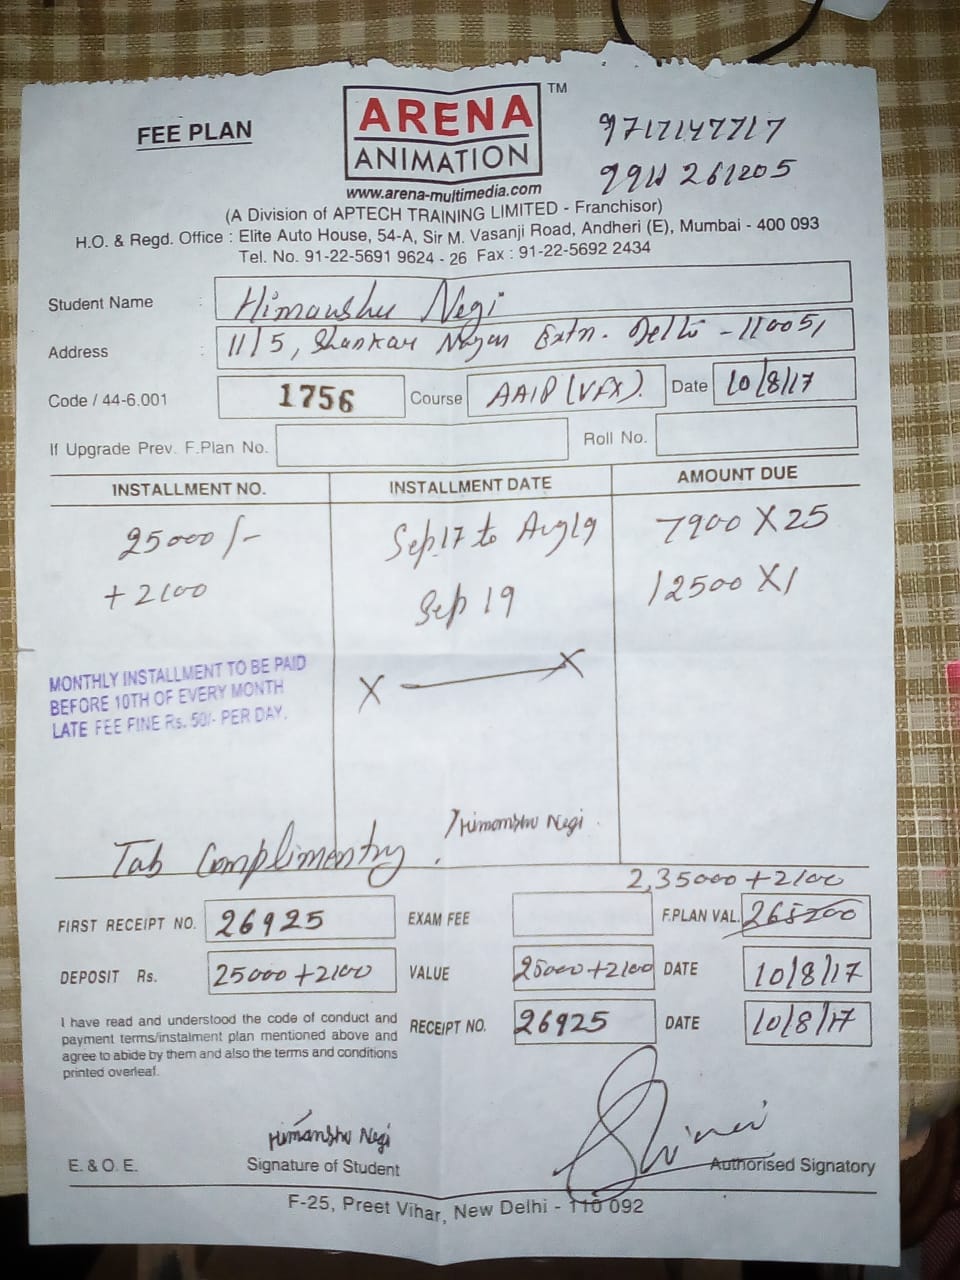 FEE PLAN
ARENA TM
ANIMATION
www.arena-multimedia.com
9717147717
9911 261205
(A Division of APTECH TRAINING LIMITED - Franchisor)
H.O. & Regd. Office : Elite Auto House, 54-A, Sir M. Vasanji Road, Andheri (E), Mumbai - 400 093
Tel. No. 91-22-5691 9624 - 26 Fax : 91-22-5692 2434
Student Name : Himanshu Negi
Address : 11/5, Shankar Nagar Extn. Delhi - 110051
Code / 44-6.001 1756 Course AAIP (VFX). Date 10/8/17
If Upgrade Prev. F.Plan No. Roll No.
INSTALLMENT NO. INSTALLMENT DATE AMOUNT DUE
25000/- Sep.17 to Aug19 7900 X 25
+2100 Sep 19 12500 X 1
X — X
MONTHLY INSTALLMENT TO BE PAID
BEFORE 10TH OF EVERY MONTH
LATE FEE FINE Rs. 50/- PER DAY.
Himanshu Negi
Tab Complimentry.
2,35000+2100
FIRST RECEIPT NO. 26925 EXAM FEE F.PLAN VAL. 265200
DEPOSIT Rs. 25000+2100 VALUE 25000+2100 DATE 10/8/17
RECEIPT NO. 26925 DATE 10/8/17
I have read and understood the code of conduct and
payment terms/instalment plan mentioned above and
agree to abide by them and also the terms and conditions
printed overleaf.
Himanshu Negi
E. & O. E. Signature of Student Authorised Signatory
F-25, Preet Vihar, New Delhi - 110 092